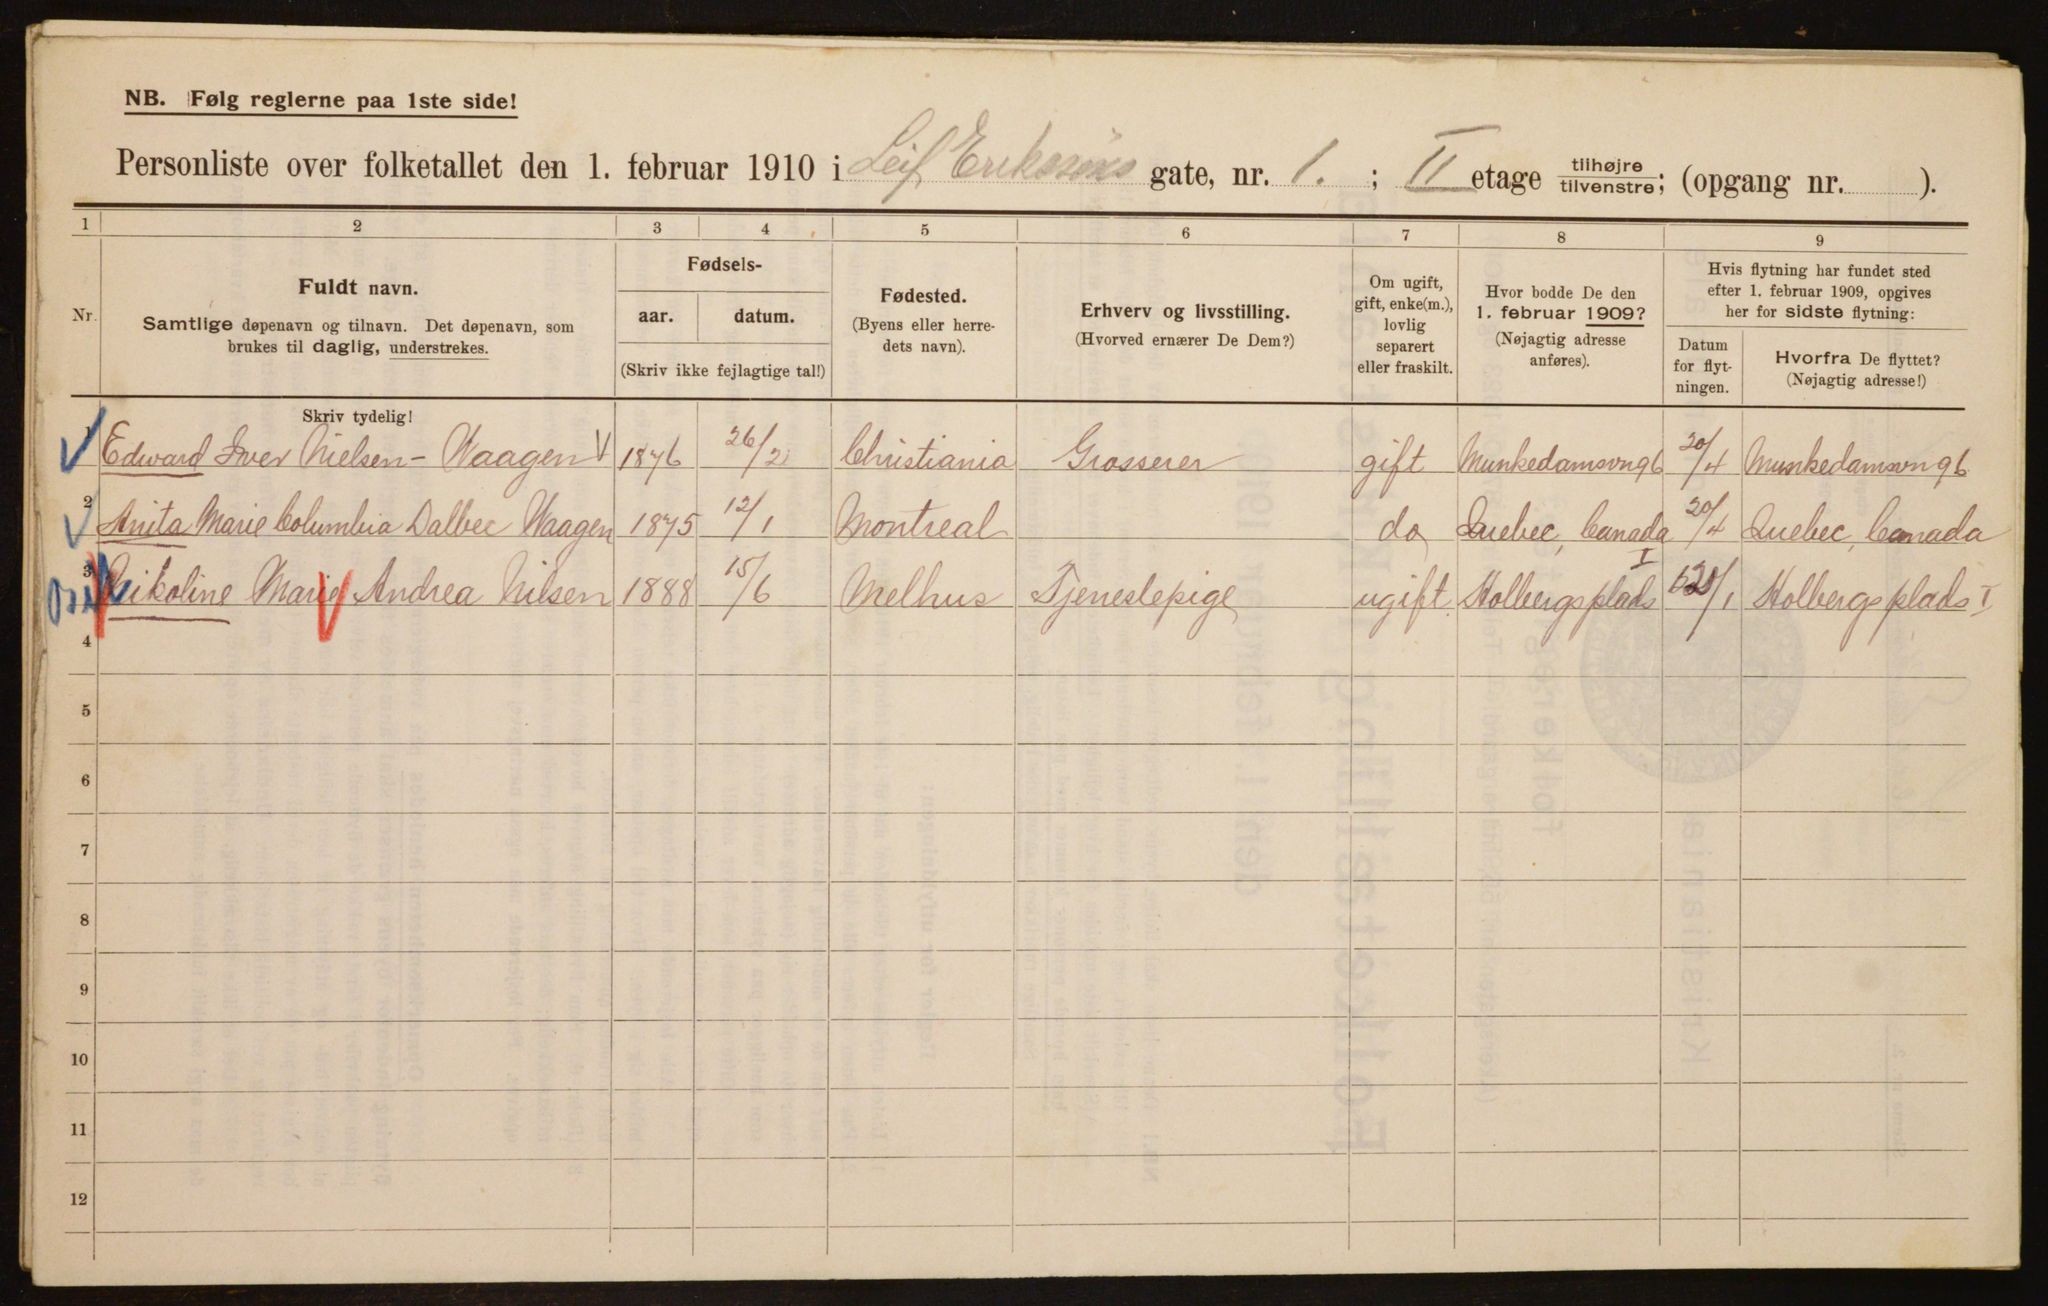 NB. Følg reglerne paa 1ste side!
Personliste over folketallet den 1. februar 1910 i Leif Eriksøns gate, nr. 1. ; II etage tilhøjre/tilvenstre; (opgang nr. ).
1 2 3 4 5 6 7 8 9
Nr.
Fuldt navn.
Samtlige døpenavn og tilnavn. Det døpenavn, som
brukes til daglig, understrekes.
Fødsels-
aar. datum.
(Skriv ikke fejlagtige tal!)
Fødested.
(Byens eller herre-
dets navn).
Erhverv og livsstilling.
(Hvorved ernærer De Dem?)
Om ugift,
gift, enke(m.),
lovlig
separert
eller fraskilt.
Hvor bodde De den
1. februar 1909?
(Nøjagtig adresse
anføres).
Hvis flytning har fundet sted
efter 1. februar 1909, opgives
her for sidste flytning:
Datum
for flyt-
ningen.
Hvorfra De flyttet?
(Nøjagtig adresse!)
Skriv tydelig!
1 Edward Iver Nielsen-Waagen 1876 26/2 Christiania Grosserer gift Munkedamsvn 96 20/4 Munkedamsvn 96
2 Anita Marie Columbia Dalbec Waagen 1875 12/1 Montreal do Quebec, Canada 20/4 Quebec, Canada
3 Nikoline Marie Andrea Nilsen 1888 15/6 Melhus Tjenestepige ugift Holbergsplads I /1 Holbergsplads I
4
5
6
7
8
9
10
11
12